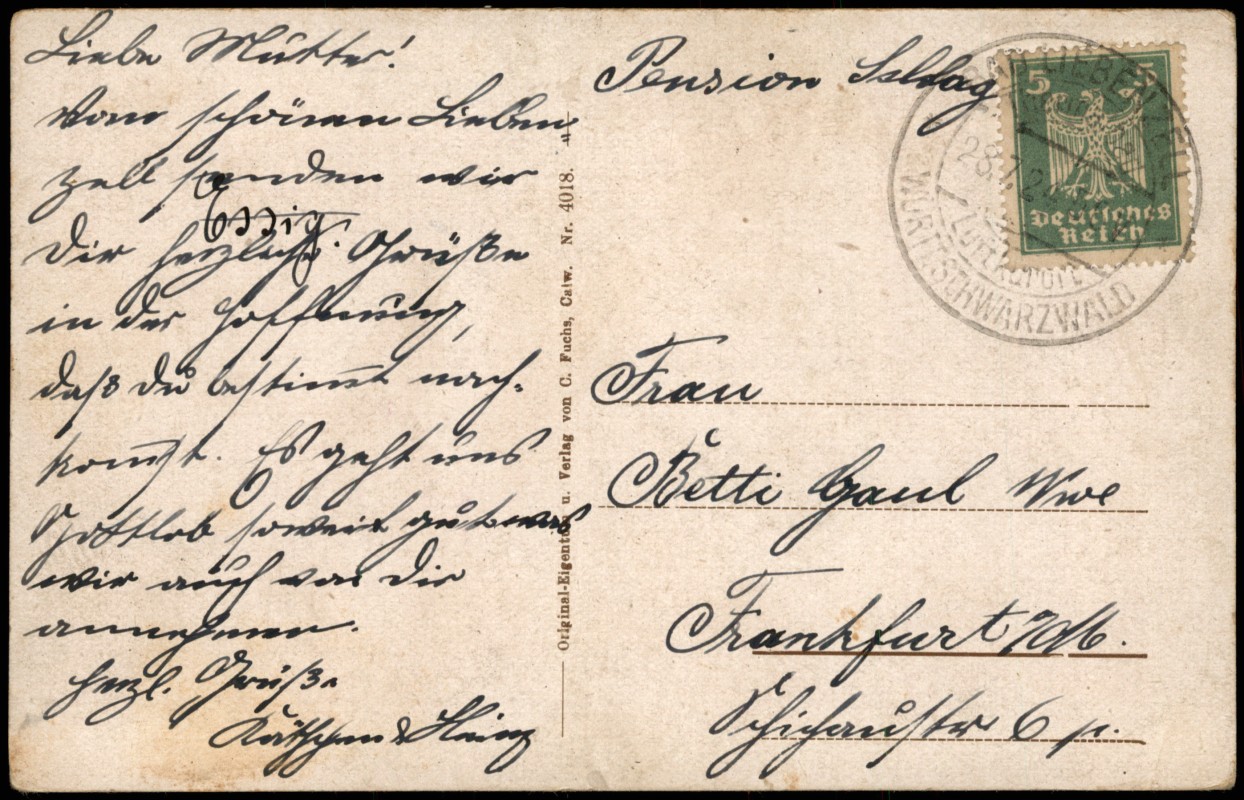 Liebe Mutter!
Vom schönen Lieben
zell senden wir
Essig
Dir herzliche Grüße
in der Hoffnung,
daß Du bestimmt nach-
kommst. Es geht uns
Gottlob soweit gut was
wir auch von Dir
annehmen.
Herzl. Grüße
Käthchen & Heinz
Original-Eigentum u. Verlag von C. Fuchs, Calw. Nr. 4018.
Pension
5 5
Deutsches
Reich
BAD LIEBENZELL
28.7.2
Luftkurort
WÜRTT. SCHWARZWALD
Frau
Betti Gaul Wwe
Frankfurt a/M.
Schichaustr 6 p.